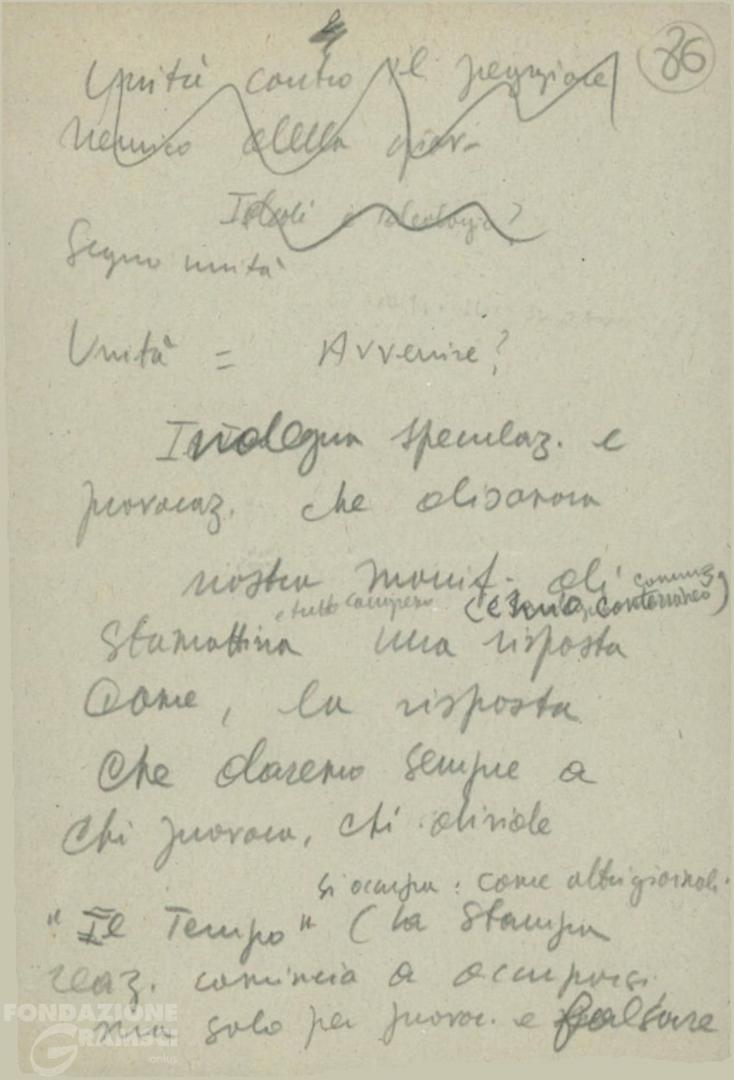 86
Unità contro il peggiore
nemico della giov.
Ideali e ideologie?
Segno unità
Unità = Avvenire?
Indegna speculaz. e
provocaz. che
nostra manif. di
e tutto
Stamattina una risposta
Come, la risposta
Che daremo sempre a
Chi provoca, chi divide
si occupa: come altri giornali.
"Il Tempo" (la Stampa
reaz. comincia a occuparsi
ma solo per provoc. e falsare
FONDAZIONE
GRAMSCI
onlus